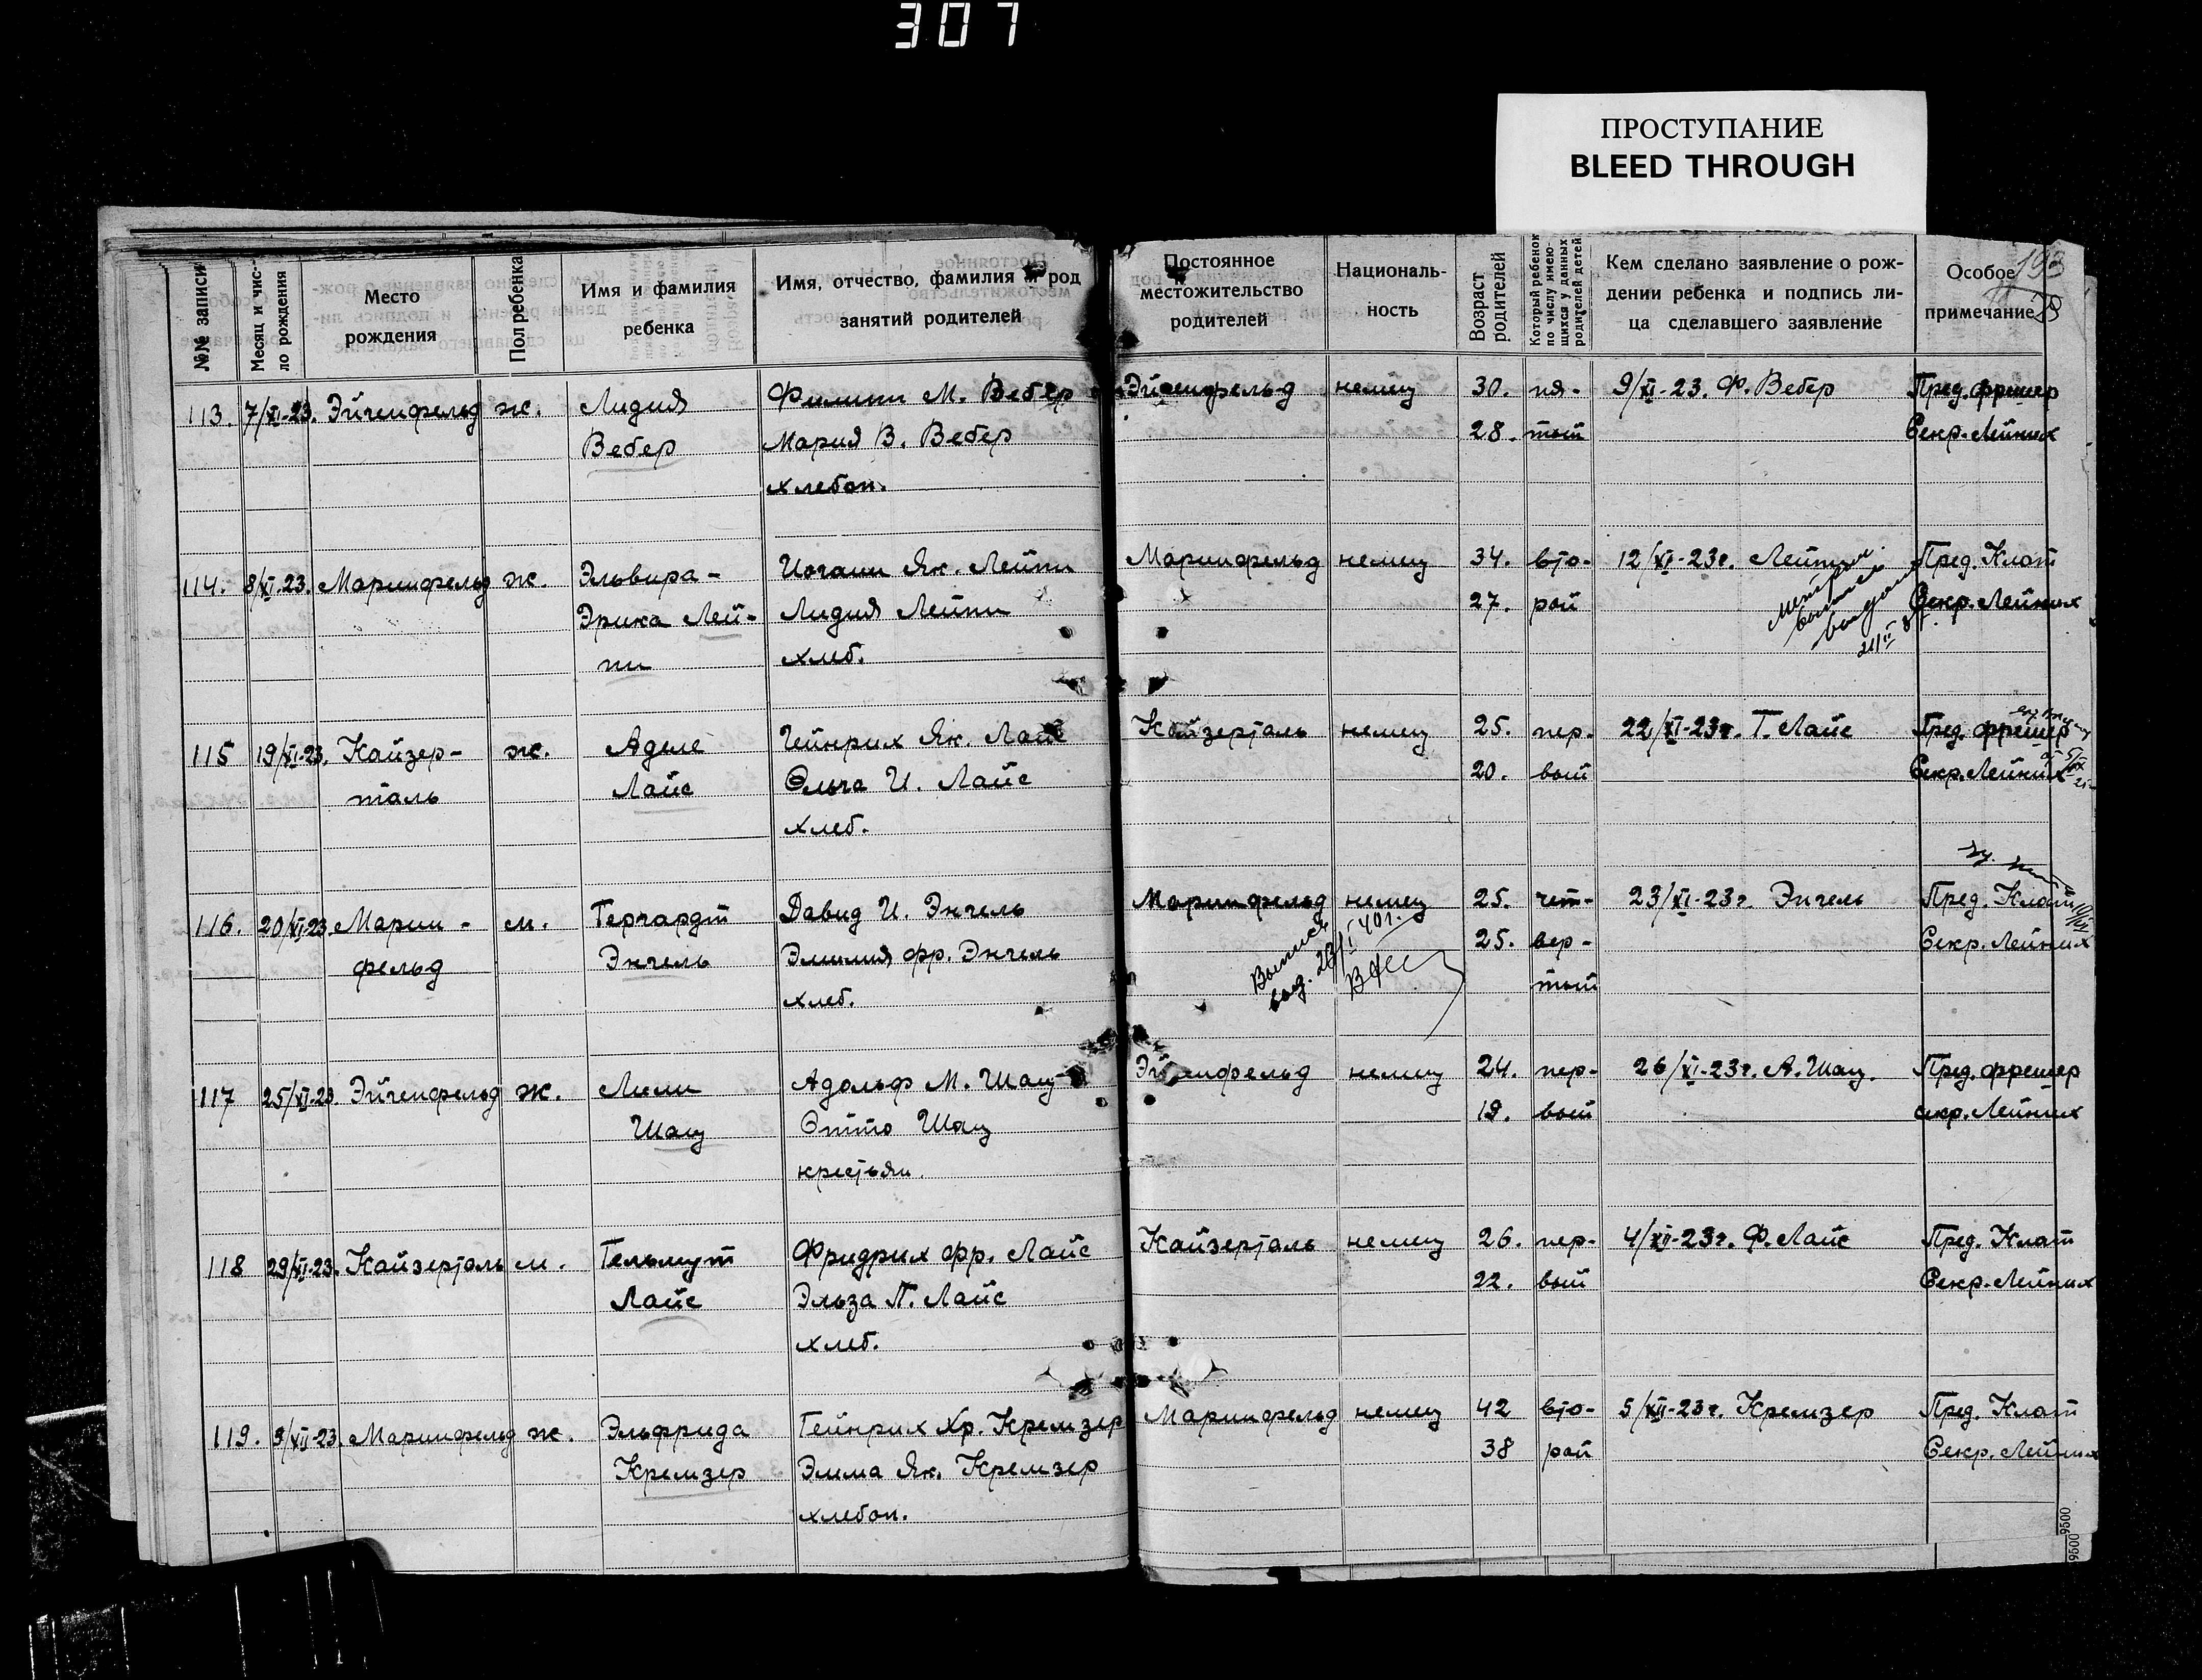 307
ПРОСТУПАНИЕ
BLEED THROUGH
193
№№ записи
Месяц и чис-
ло рождения
Место
рождения
Пол ребенка
Имя и фамилия
ребенка
Имя, отчество, фамилия и род
занятий родителей
Постоянное
местожительство
родителей
Националь-
ность
Возраст
родителей
Который ребенок
по числу имею-
щихся у данных
родителей детей
Кем сделано заявление о рож-
дении ребенка и подпись ли-
ца сделавшего заявление
Особое
примечание
113. 7/XI-23. Эйгенфельд ж. Лидия Филипп М. Вебер Эйгенфельд немец 30. пя- 9/XI-23. Ф. Вебер Пред. Фрешер
Вебер Мария В. Вебер 28. тый Секр. Лейних
хлебоп.
114. 8/XI-23. Мариинфельд ж. Эльвира- Иоганн Як. Лейпи Мариинфельд немец 34. вто- 12/XI-23г. Лейпи Пред. Клат
Эрика Лей- Лидия Лейпи 27. рой Секр. Лейних
пи хлеб.
метрич.
выпись
выдана
115 19/XI-23. Кайзер- ж. Аделе Гейнрих Як. Лайс Кайзерталь немец 25. пер- 22/XI-23г. Г. Лайс Пред. Фрешер
таль Лайс Ольга И. Лайс 20. вый Секр. Лейних
хлеб.
116. 20/XI-23. Мариин- м. Гергардт Давид И. Энгель Мариинфельд немец 25. чет- 23/XI-23г. Энгель Пред. Клат
фельд Энгель Эмилия Фр. Энгель 25. вер- Секр. Лейних
хлеб. тый
Выпись
выд. 26/I 40г.
117 25/XI-23. Эйгенфельд ж. Лили Адольф М. Шац Эйгенфельд немец 24. пер- 26/XI-23г. А. Шац. Пред. Фрешер
Шац Отто Шац 19. вый секр. Лейних
крестьян.
118 29/XI-23. Кайзерталь м. Гельмут Фридрих Фр. Лайс Кайзерталь немец 26. пер- 4/XII-23г. Ф. Лайс Пред. Клат
Лайс Эльза П. Лайс 22. вый Секр. Лейних
хлеб.
119. 9/XII-23. Мариинфельд ж. Эльфрида Гейнрих Хр. Кремзер Мариинфельд немец 42 вто- 5/XII-23г. Кремзер Пред. Клат
Кремзер Эмма Як. Кремзер 38 рой Секр. Лейних
хлебоп.
9500
9500